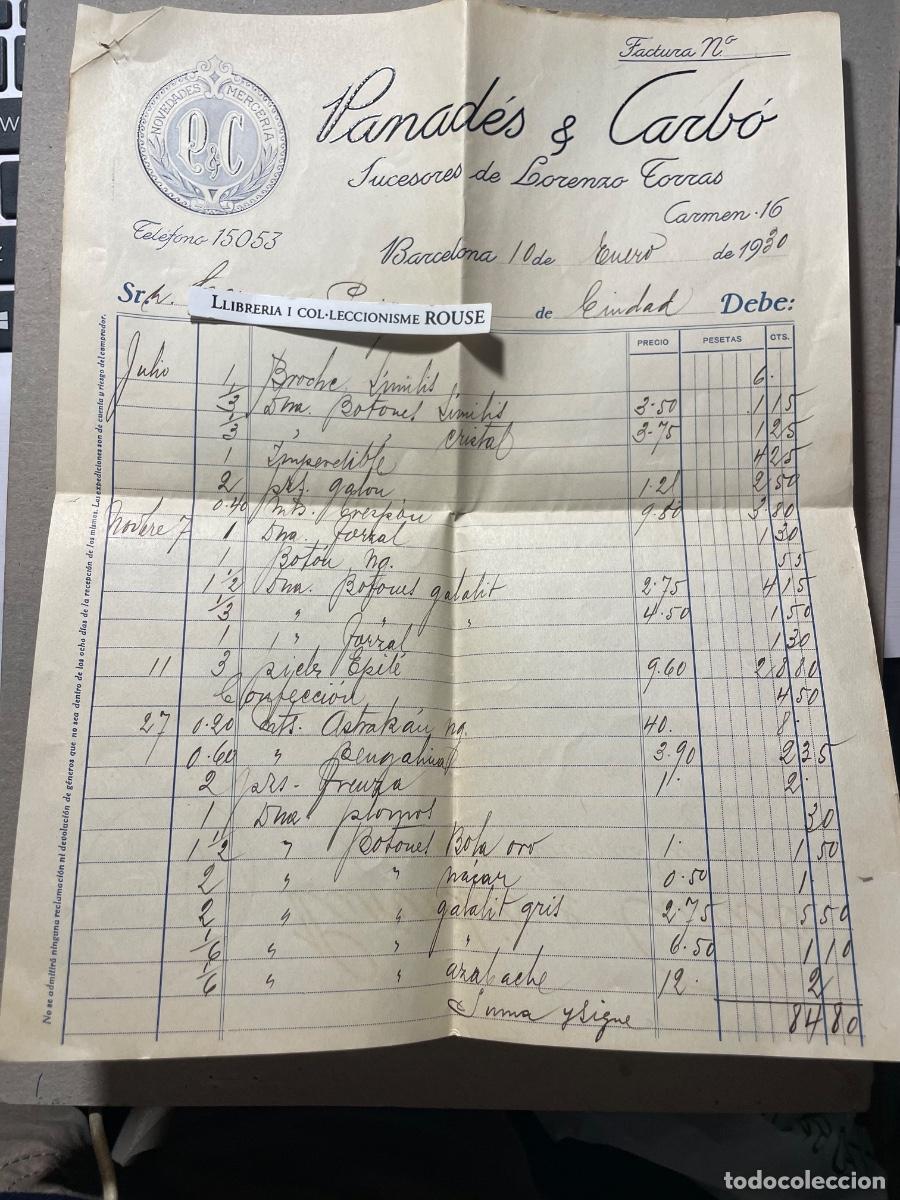 Factura Nº
NOVEDADES MERCERIA
P & C
Panadés & Carbó
Sucesores de Lorenzo Torras
Carmen·16
Teléfono 15053
Barcelona 10 de Enero de 1930
LLIBRERIA I COL·LECCIONISME ROUSE
Sr de Ciudad Debe:
PRECIO PESETAS CTS.
Julio 1 Broche Similis 6·
1/3 Dna. Botones Similis 3·50 1 15
1/3 " cristal 3·75 1 25
1 Imperdible 4 25
2 prs. galon 1·25 2 50
0·40 Mts. crespón 9·50 3 80
Novbre 7 1 Dna. forzal 1 30
1 Botón ng. 55
1 1/2 Dna. Botones galalit 2·75 4 15
1/3 " " " 4·50 1 50
1 " forzal 1 30
11 3 piels Epilé 9.60 28 80
Confección 4 50
27 0·20 Mts. Astrakán ng. 40. 8·
0·60 " Bengalina 3·90 2 35
2 prs. Trenza 1· 2·
1 Dna plomos 30
1 1/2 " Botones Bola oro 1· 1 50
2 " " nácar 0·50 1
2 " " galalit gris 2·75 5 50
1/6 " " " 6·50 1 10
1/6 " " azabache 12· 2
Suma y sigue 84 80
No se admitirá ninguna reclamación ni devolución de géneros que no sea dentro de los ocho días de la recepción de los mismos. Las expediciones son de cuenta y riesgo del comprador.
todocoleccion